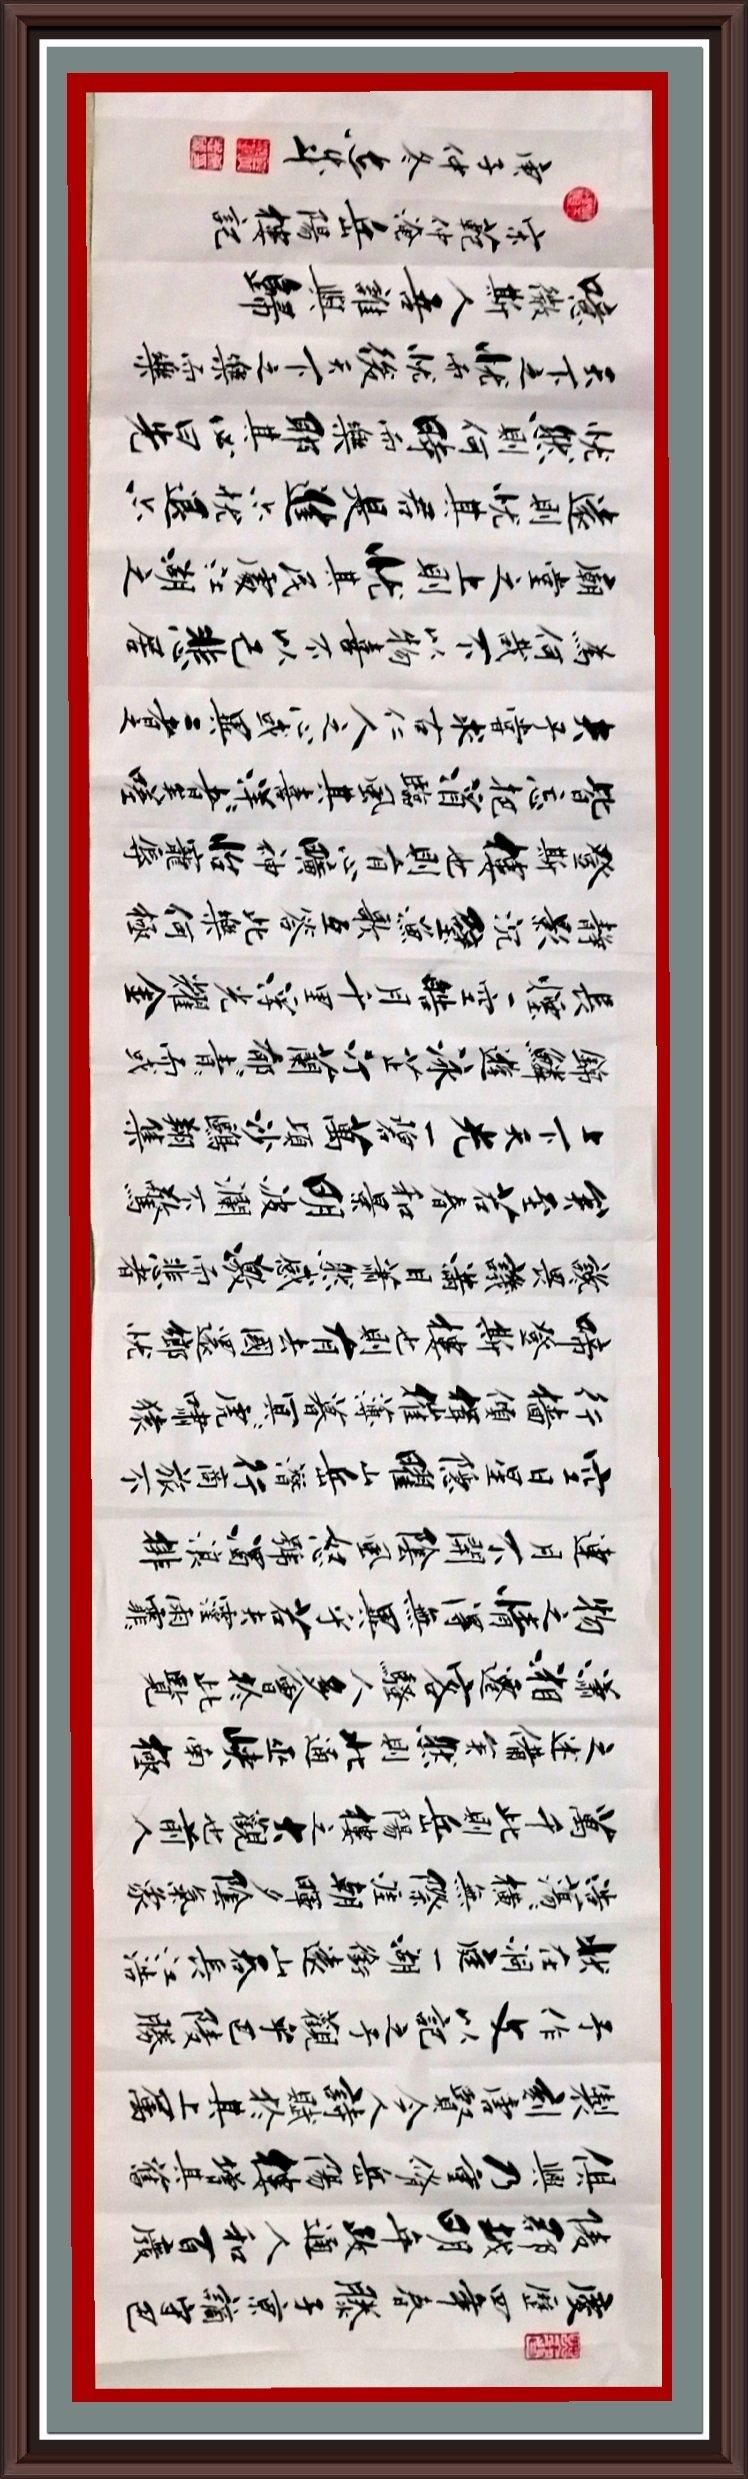 慶歷四年春滕子京謫守巴
陵郡越明年政通人和百廢
俱興乃重修岳陽樓增其舊
製刻唐賢今人詩賦於其上屬
予作文以記之予觀夫巴陵勝
狀在洞庭一湖銜遠山吞長江浩
浩湯〻橫無際涯朝暉夕陰氣象
萬千此則岳陽樓之大觀也前人
之述備矣然則北通巫峽南極
瀟湘遷客騷人多會於此覽
物之情得無異乎若夫霪雨霏
連月不開陰風怒號濁浪排
空日星隱曜山岳潛行商旅不
行檣傾楫摧薄暮冥〻虎嘯猿
啼登斯樓也則有去國還鄉忧
讒畏譏滿目蕭然感極而悲者
矣至若春和景明波瀾不驚
上下天光一碧萬頃沙鷗翔集
錦鱗遊泳芷汀蘭郁〻青〻而或
長煙一空皓月千里浮光耀金
靜影沉璧漁歌互答此樂何極
登斯樓也則有心曠神怡寵辱
皆忘把酒臨風其喜洋〻者矣嗟
夫予嘗求古仁人之心或異二者之
為何哉不以物喜不以己悲居
廟堂之上則忧其民處江湖之
遠則忧其君是進亦忧退亦
忧然則何時而樂耶其必曰先
天下之忧而忧後天下之樂而樂
噫微斯人吾誰與歸
宋范仲淹岳陽樓記
庚子仲冬